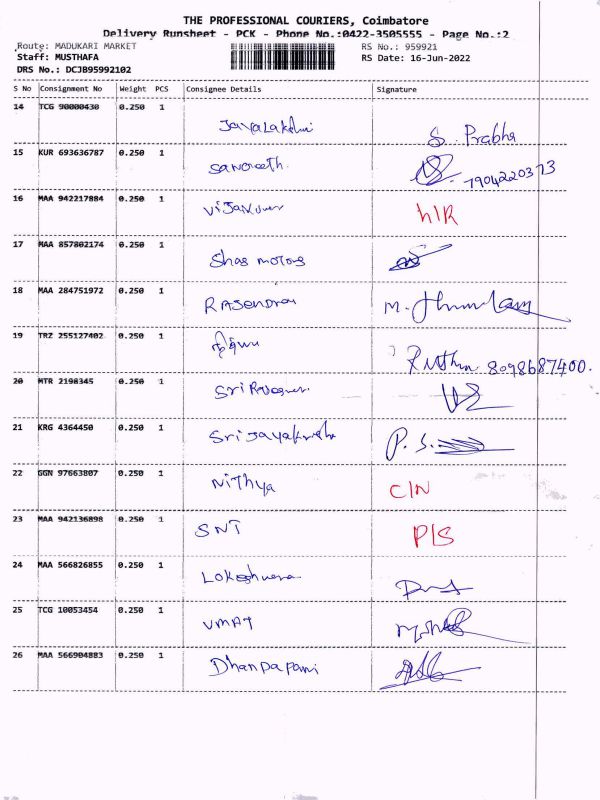 THE PROFESSIONAL COURIERS, Coimbatore
Delivery Runsheet - PCK - Phone No.:0422-3505555 - Page No.:2
Route: MADUKARI MARKET RS No.: 959921
Staff: MUSTHAFA RS Date: 16-Jun-2022
DRS No.: DCJB95992102
S No Consignment No Weight PCS Consignee Details Signature
14 TCG 90000430 0.250 1
Jayalakshmi S. Prabha
15 KUR 693636787 0.250 1
7904220373
16 MAA 942217884 0.250 1
Vijaykumar h/R
17 MAA 857802174 0.250 1
Shas motors
18 MAA 284751972 0.250 1
Rajendran M.
19 TRZ 255127402 0.250 1
8098687400.
20 MTR 2198345 0.250 1
21 KRG 4364450 0.250 1
P. S.
22 GGN 97663807 0.250 1
Nithya C/N
23 MAA 942136898 0.250 1
SNT P/S
24 MAA 566826855 0.250 1
25 TCG 10053454 0.250 1
VMPT
26 MAA 566904883 0.250 1
Dhanpapani